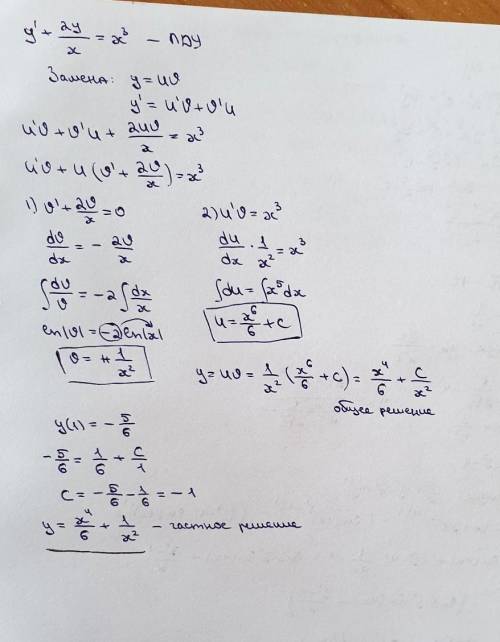 y' + 2y/x = x³ – ЛДУ
Замена: y = uϑ
y' = u'ϑ + ϑ'u
u'ϑ + ϑ'u + 2uϑ/x = x³
u'ϑ + u(ϑ' + 2ϑ/x) = x³
1) ϑ' + 2ϑ/x = 0
dϑ/dx = – 2ϑ/x
∫ dϑ/ϑ = –2 ∫ dx/x
ln|ϑ| = –2 ln|x|
ϑ = + 1/x²
2) u'ϑ = x³
du/dx · 1/x² = x³
∫ du = ∫ x⁵ dx
u = x⁶/6 + C
y = uϑ = 1/x² (x⁶/6 + C) = x⁴/6 + C/x²
общее решение
y(1) = – 5/6
– 5/6 = 1/6 + C/1
C = – 5/6 – 1/6 = –1
y = x⁴/6 + 1/x² – частное решение